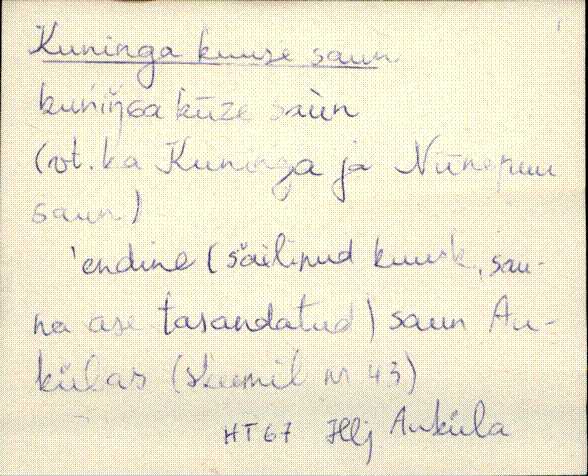 Kuninga kuuse saun
kuniŋɢa kūze saùn
(vt. ka Kuninga ja Niinepuu
saun)
'endine (säilinud kuusk, sau-
na ase tasandatud) saun Au-
külas (skeemil nr 43)
HT 67 Hlj Auküla